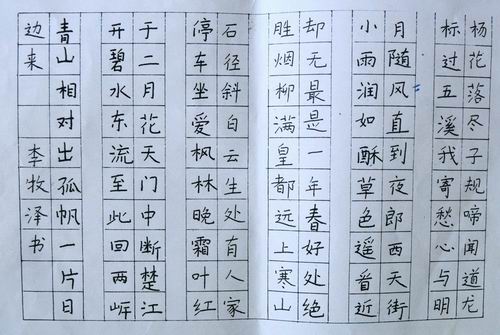 杨花落尽子规啼闻道龙
标过五溪我寄愁心与明
月随风直到夜郎西天街
小雨润如酥草色遥看近
却无最是一年春好处绝
胜烟柳满皇都远上寒山
石径斜白云生处有人家
停车坐爱枫林晚霜叶红
于二月花天门中断楚江
开碧水东流至此回两岸
青山相对出孤帆一片日
边来 李牧泽书